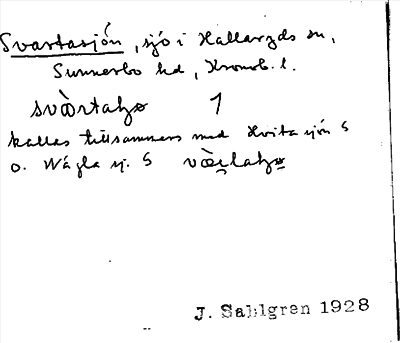 Svartasjön, sjö i Hallaryds sn,
Sunnerbo hd, Kronob. l.
svàrtahø 1
kallas tillsammans med Hvita sjön S
o. Vågla sj. S
J. Sahlgren 1928